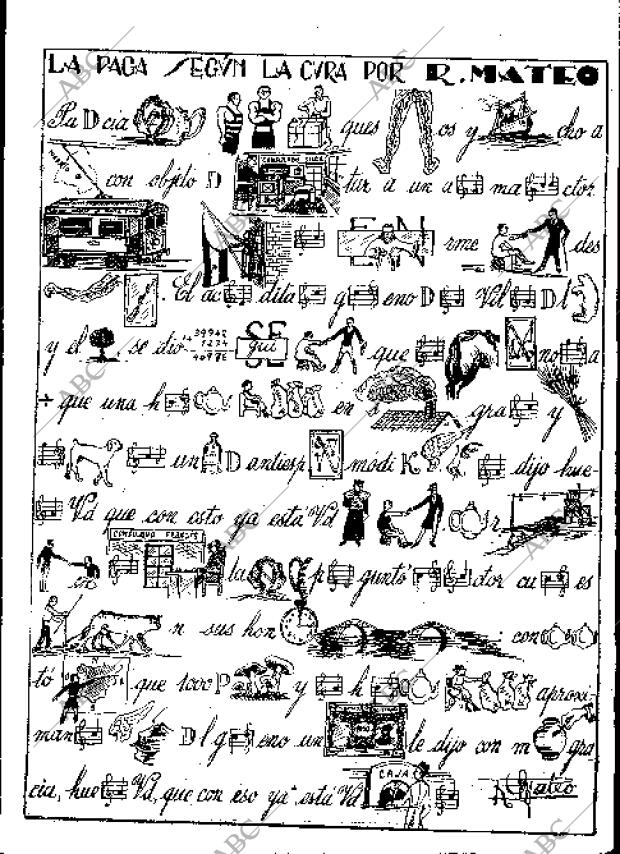 LA PAGA SEGÚN LA CURA POR R. MATEO
Pa D cia ques os y cho a
con objeto D CONSULADO tar a un a ma ctor
EN rme des
. El ac dita g eno D Vil D l
y el se dió + 39945 1234 40986 SE qui que no a
÷ que una h en s gra y
un D antiesp módi K dijo hue-
Vd que con esto ya está Vd r
en CONSULADO FRANCES la p guntó ctor cu es
n sus hon : con
tó N que 1000 P y h aproxi-
man D l g eno un le dijo con m gra
cia, hue Vd, que con eso ya está Vd CAJA R. Mateo
ABC